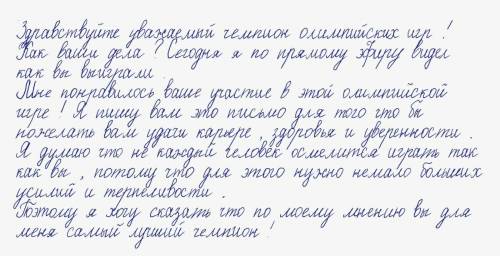 Здравствуйте уважаемый чемпион олимпийских игр !
Как ваши дела ? Сегодня я по прямому эфиру видел
как вы выиграли .
Мне понравилось ваше участие в этой олимпийской
игре ! Я пишу вам это письмо для того что бы
пожелать вам удачи карьере , здоровья и уверенности .
Я думаю что не каждый человек осмелится играть так
как вы , потому что для этого нужно немало больших
усилий и терпеливости .
Поэтому я хочу сказать что по моему мнению вы для
меня самый лучший чемпион !